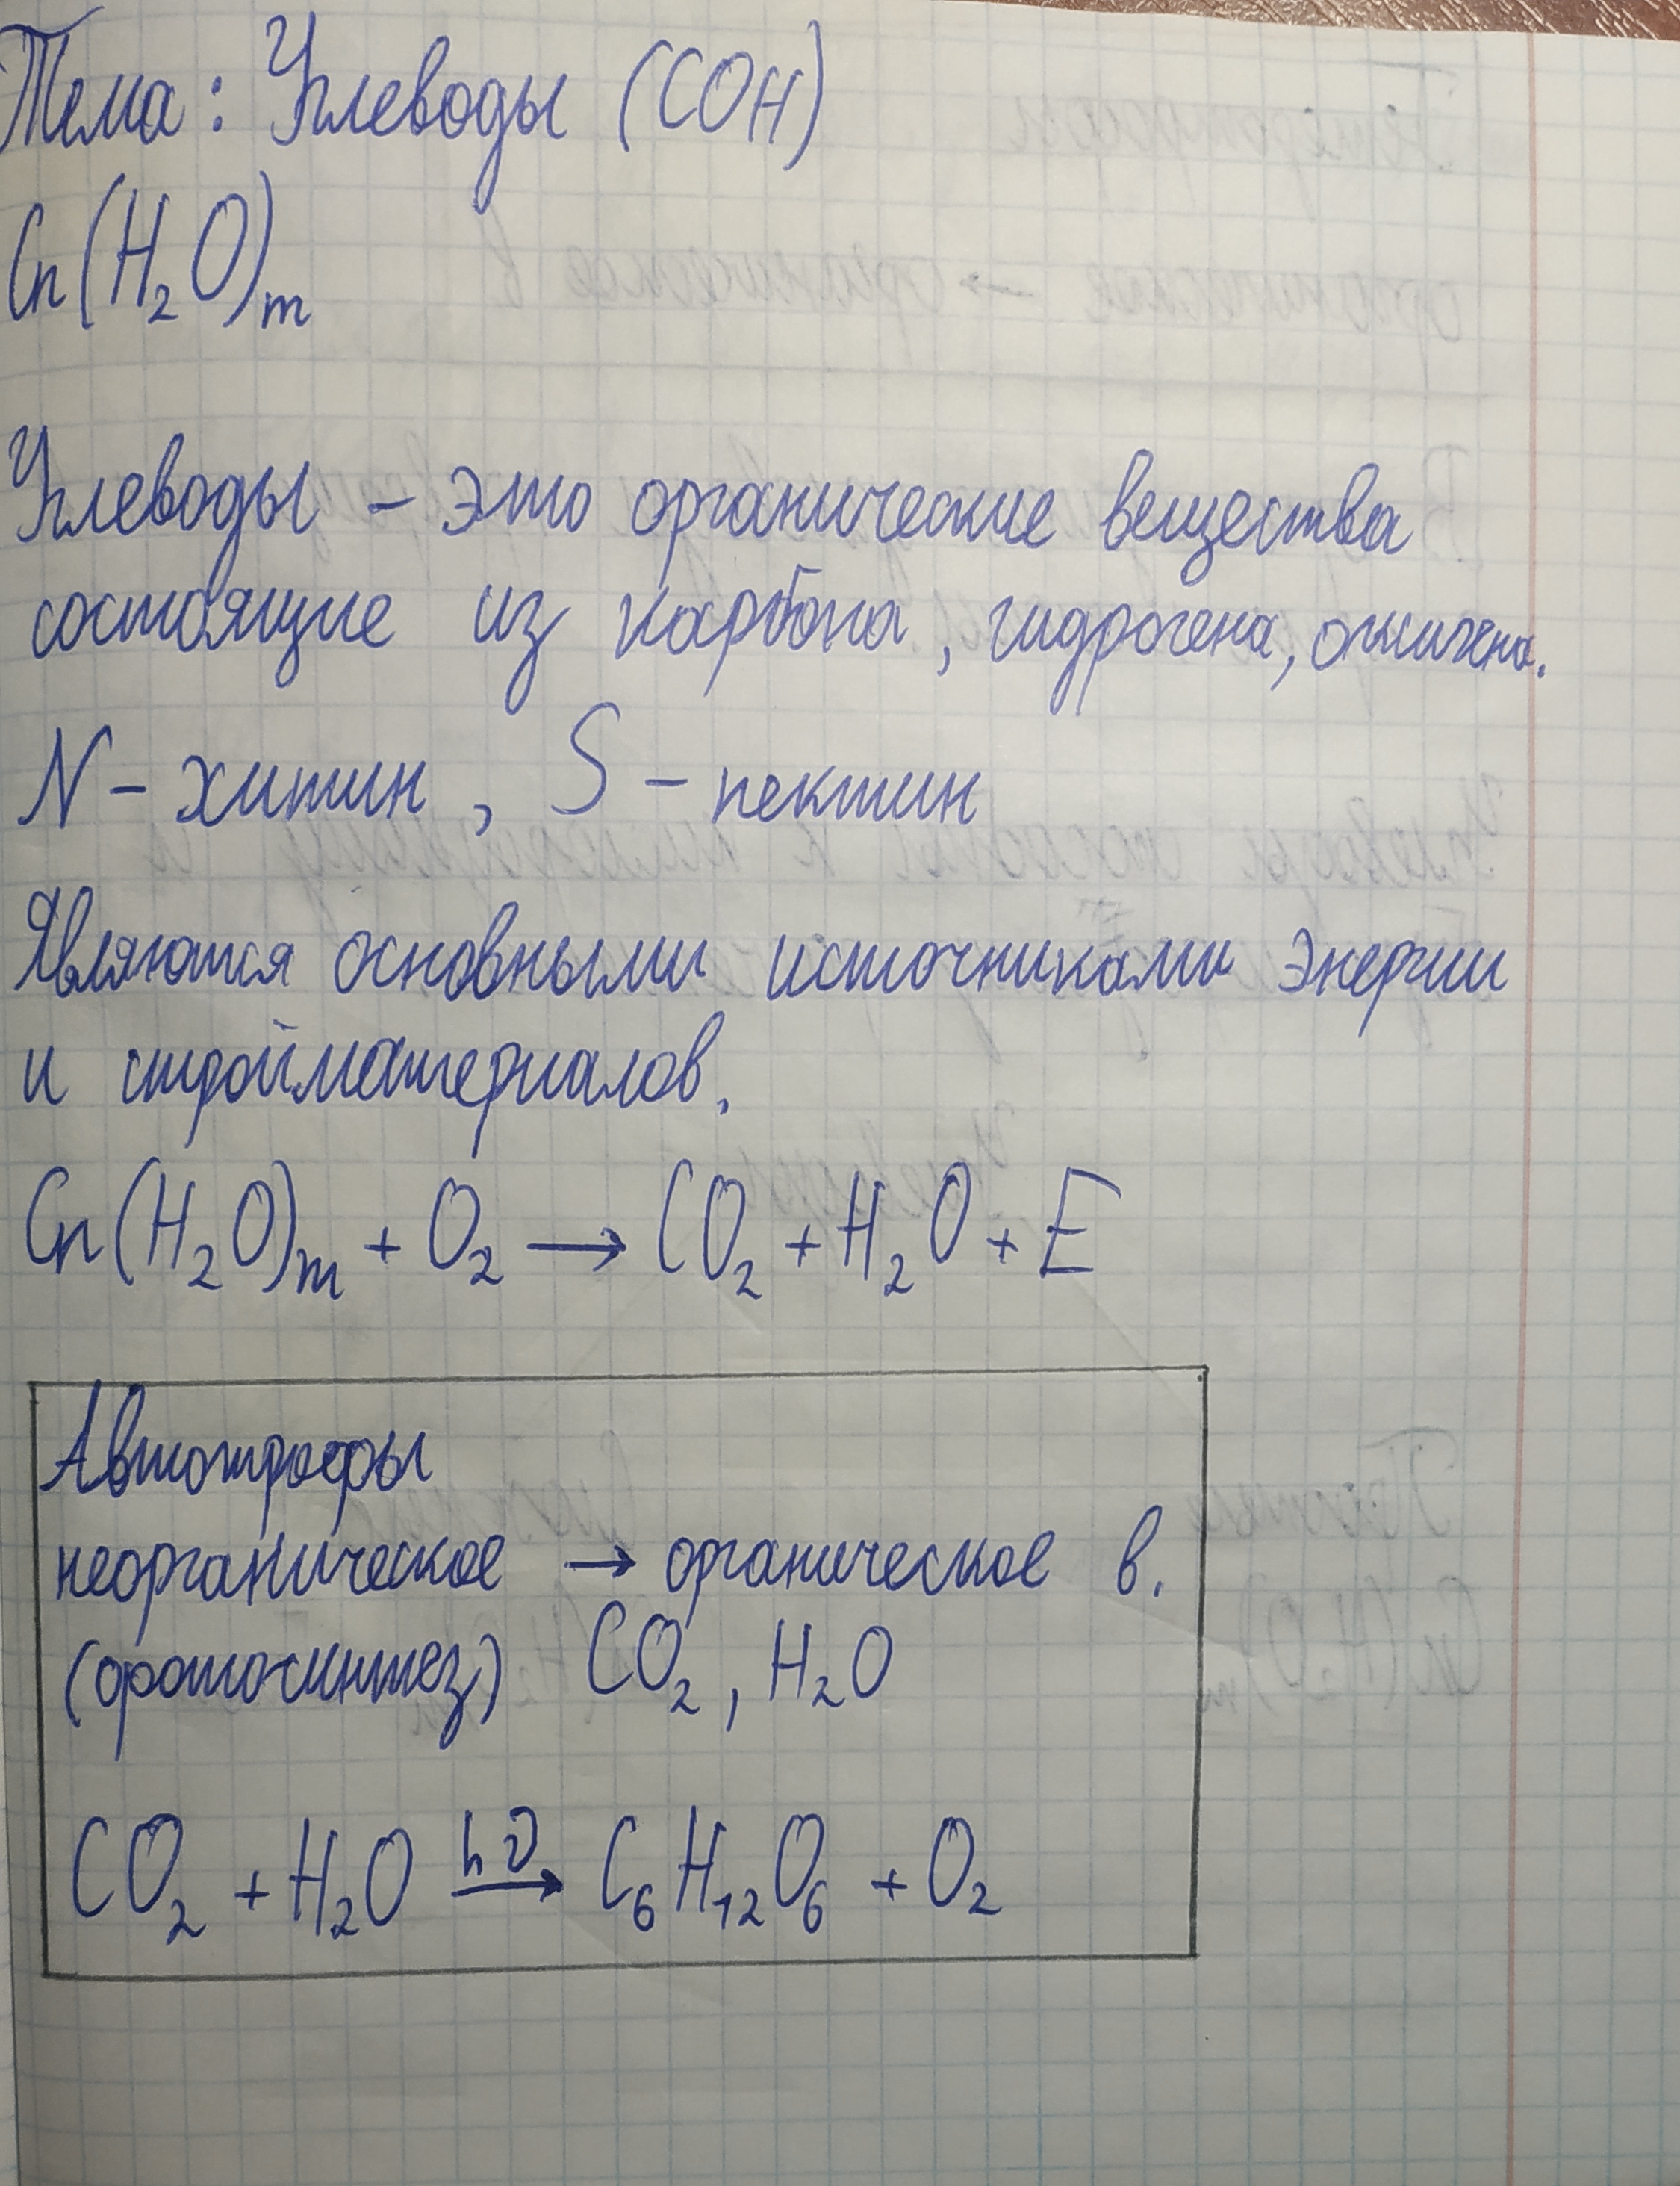 Тема: Углеводы (COH)
Cn(H₂O)m
Углеводы – это органические вещества
состоящие из карбона, гидрогена, оксигена.
N – хитин, S – пектин
Являются основными источниками энергии
и стройматериалов.
Cn(H₂O)m + O₂ → CO₂ + H₂O + E
Автотрофы
неорганическое → органическое в.
(фотосинтез) CO₂, H₂O
CO₂ + H₂O hν → C₆H₁₂O₆ + O₂